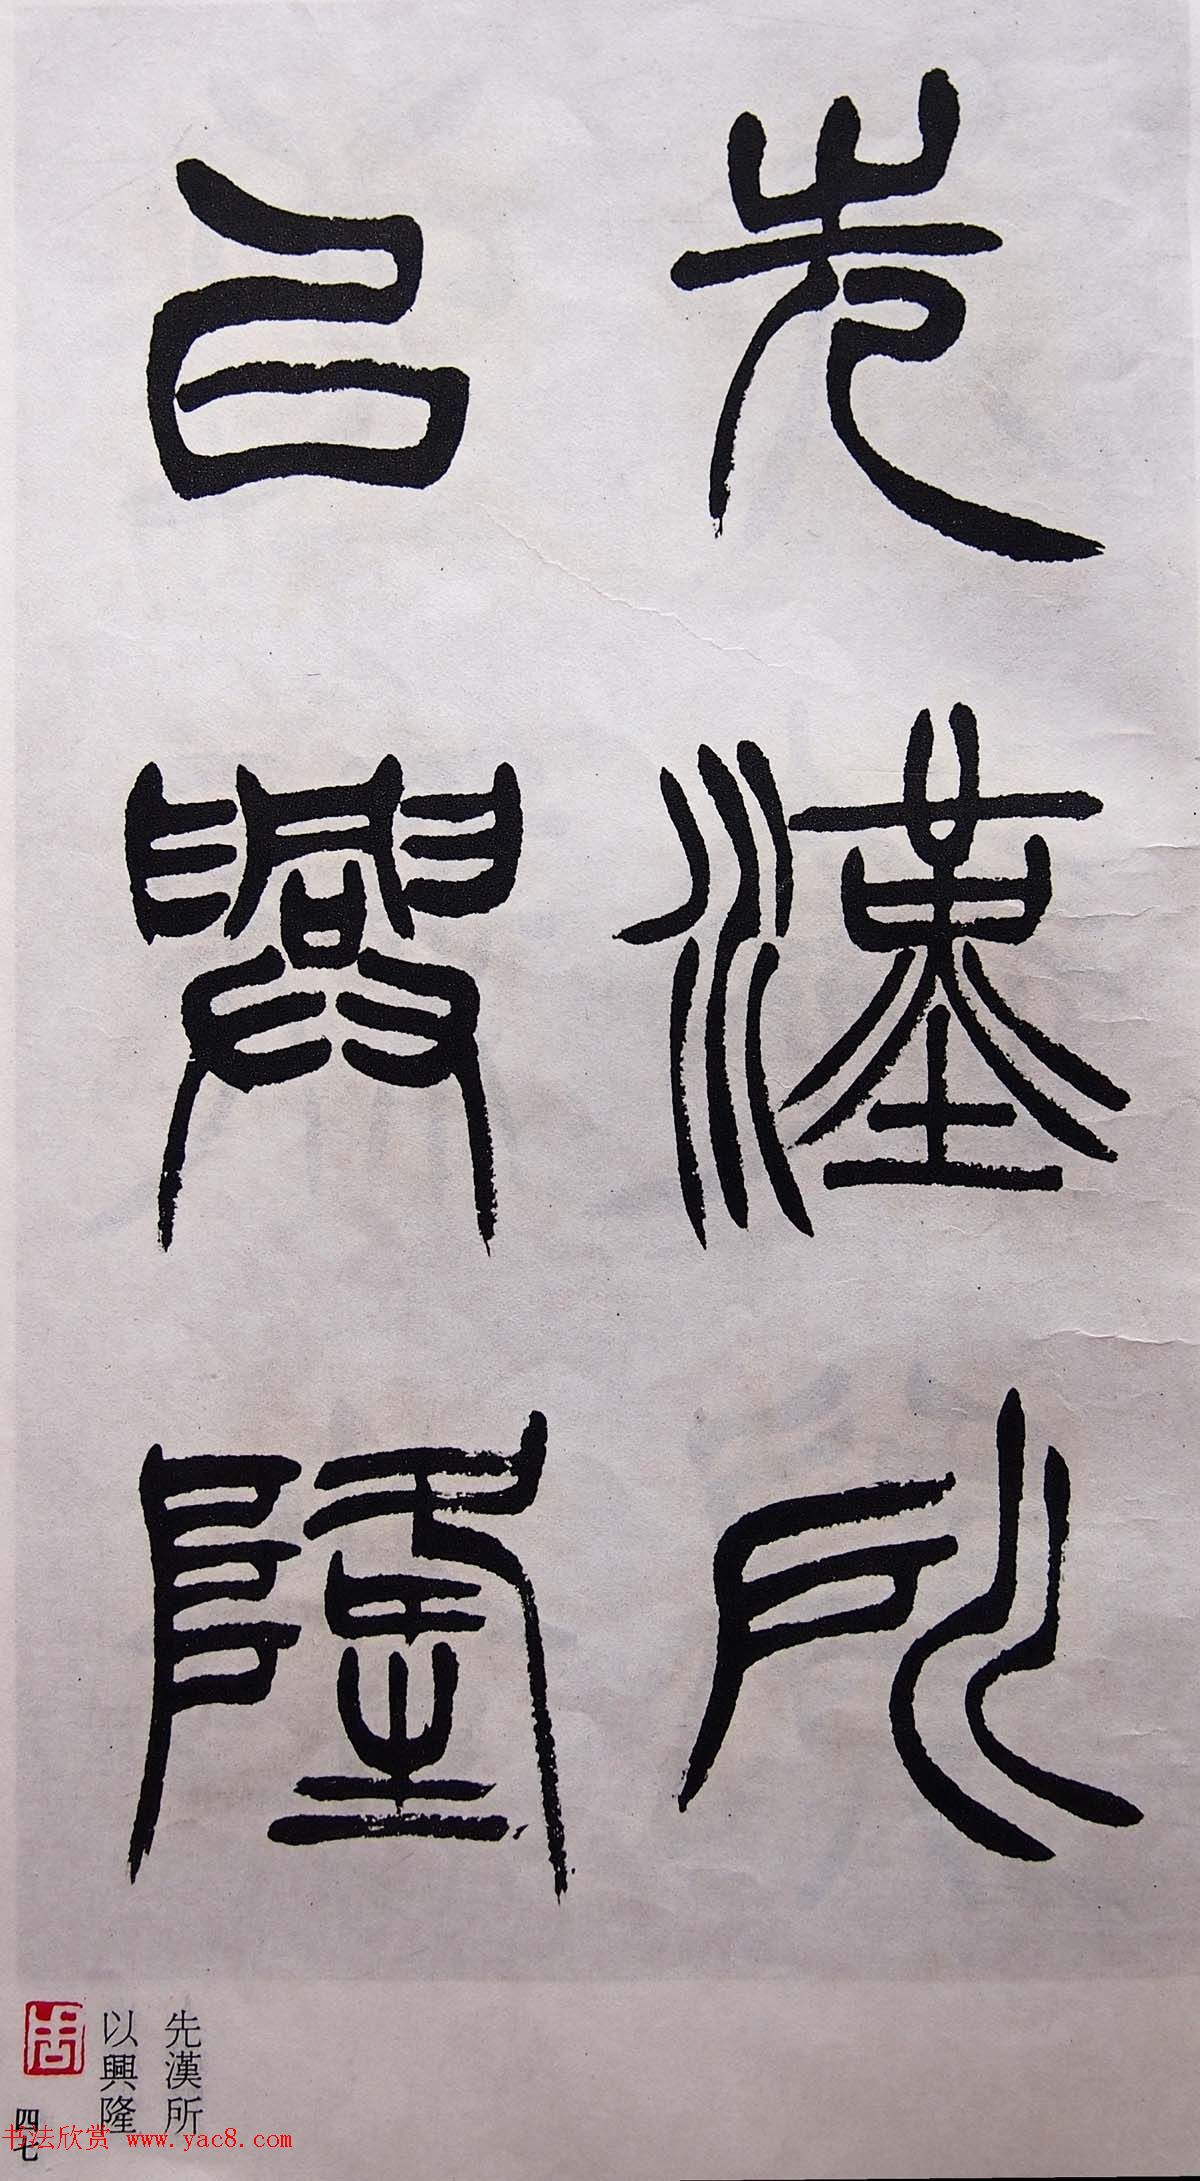 先漢所
㠯興隆
先漢所
以興隆
周
四七
书法欣赏 www.yac8.com